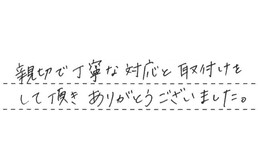 親切で丁寧な対応と取付けを
して頂きありがとうございました。